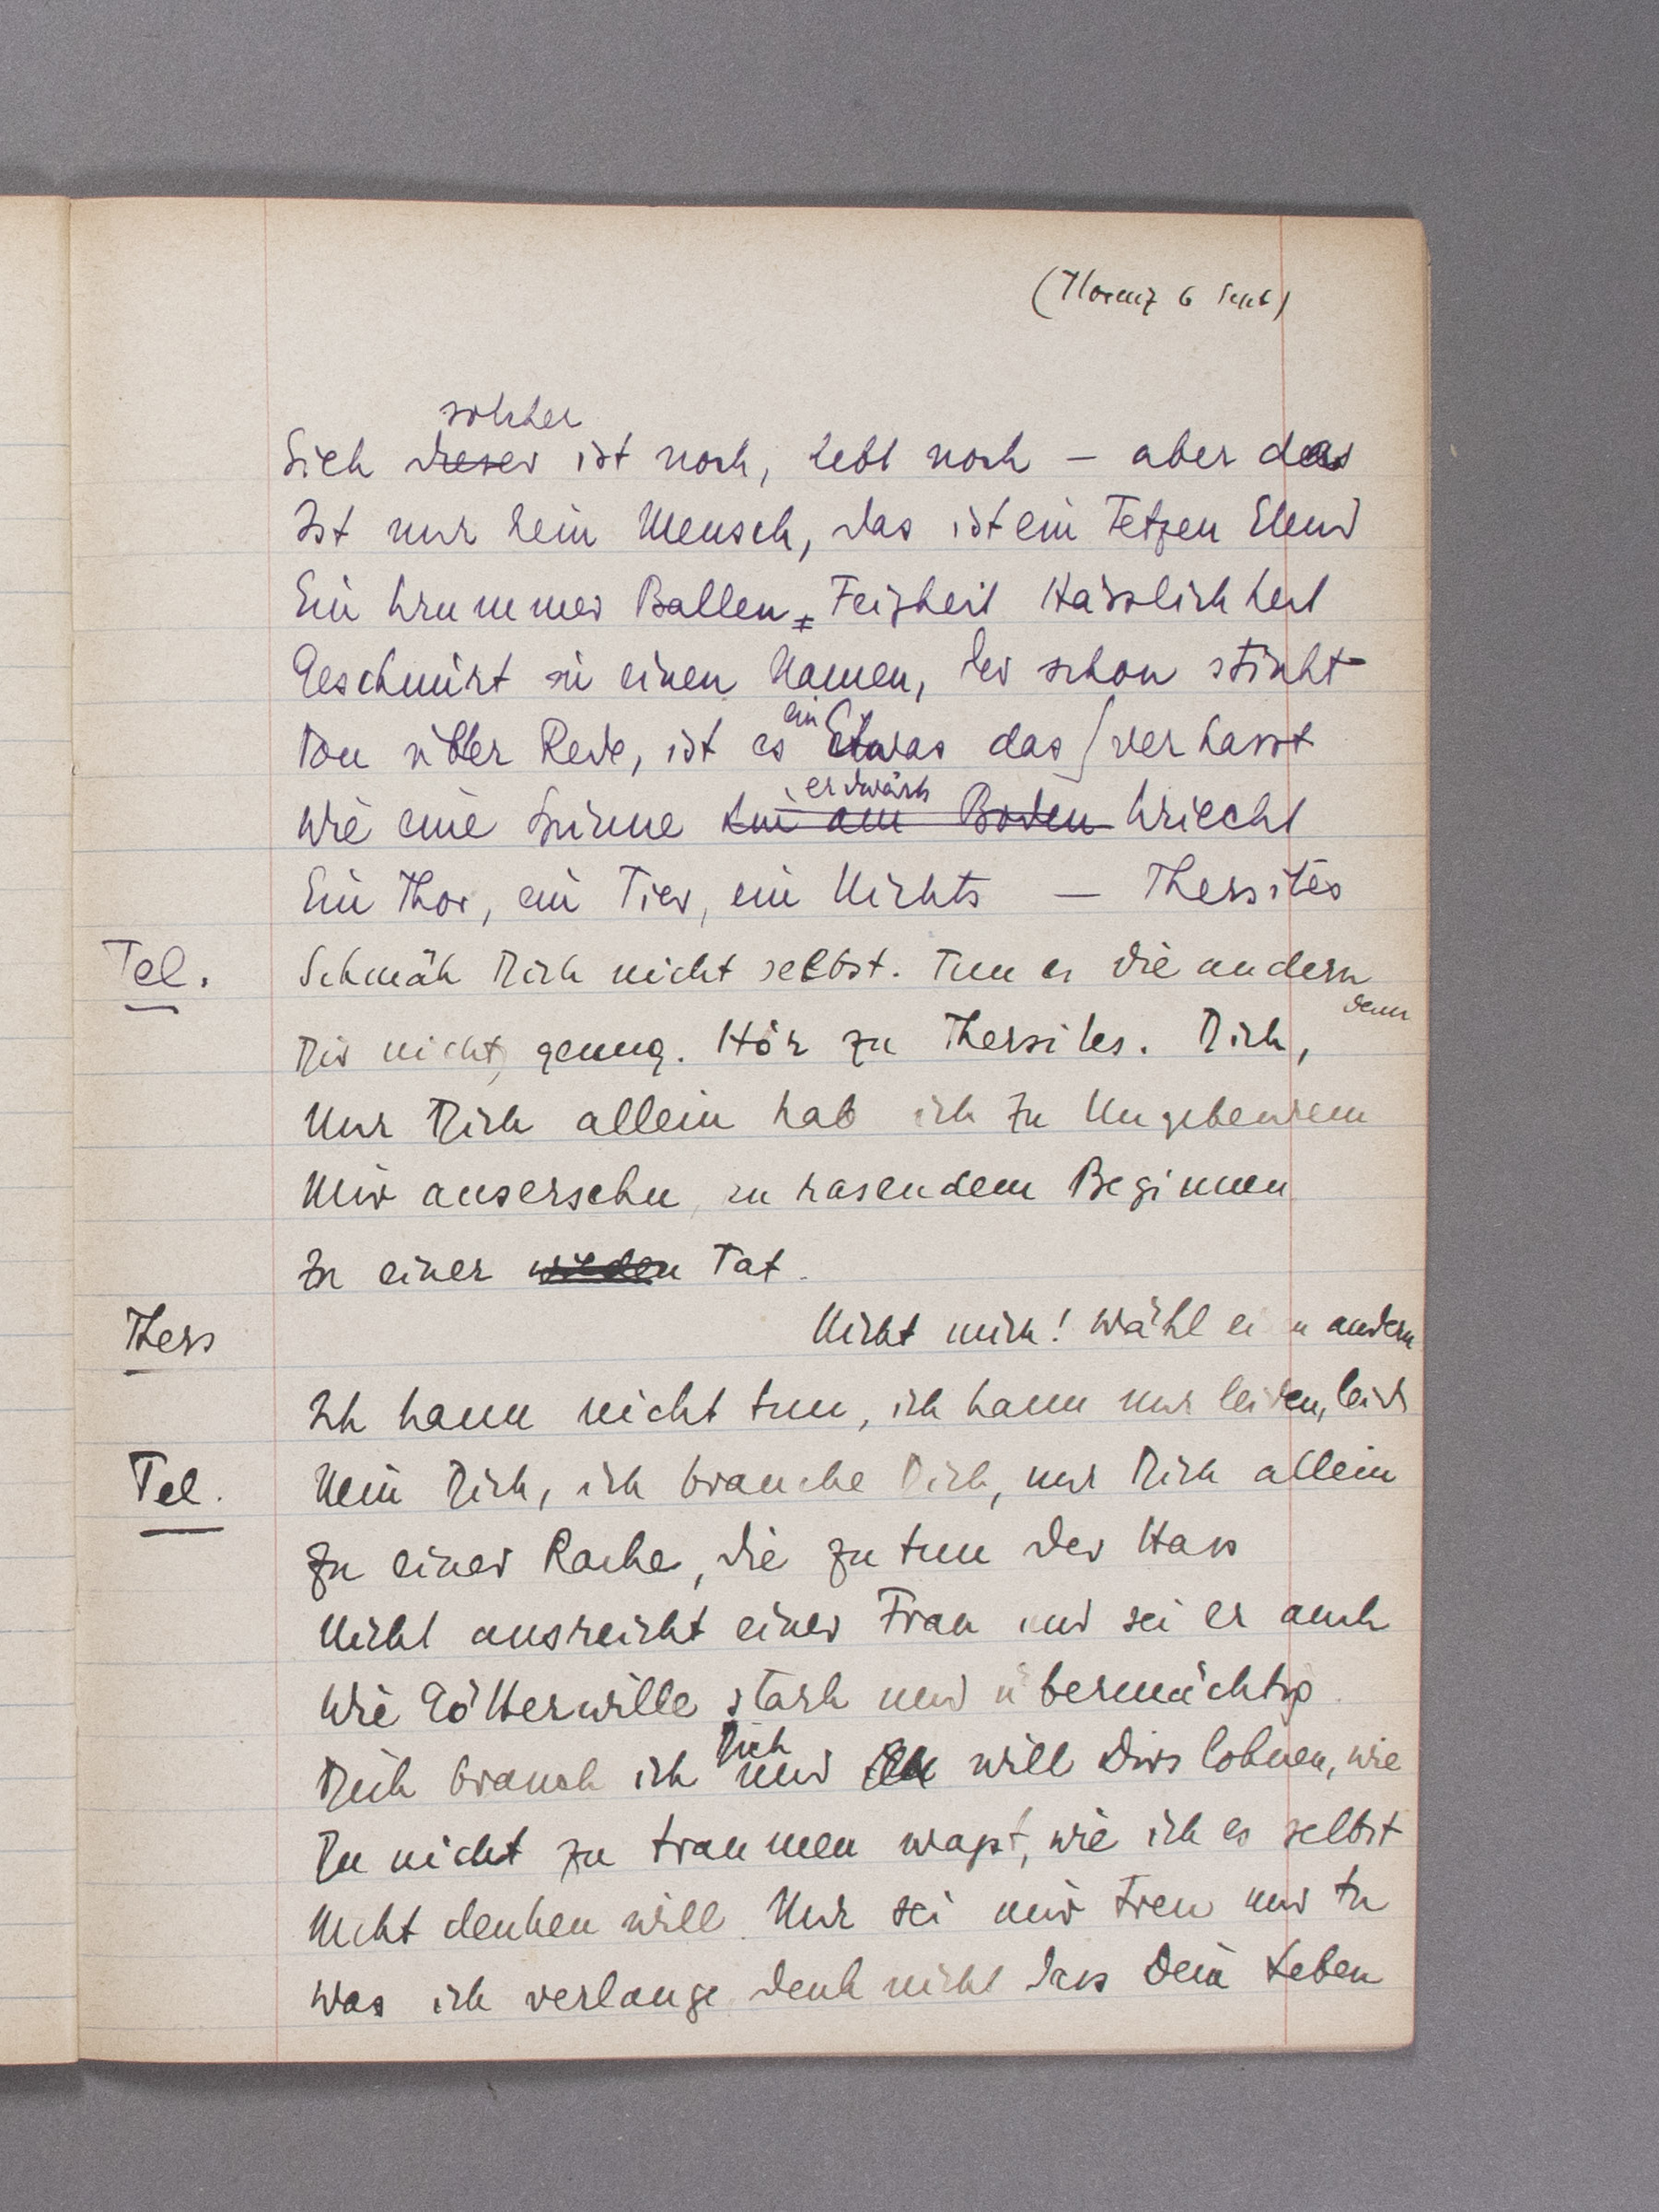 (Florenz 6 Sept)
solcher
Sieh dieser ist noch, lebt noch – aber das
Ist nur kein Mensch, das ist ein Fetzen Elend
Ein krummer Ballen, Feigheit Hässlichkeit
Geschnürt in einen Namen, der schon stinkt
Von übler Rede, ist es ein Etwas das verhasst
erdwärts
Wie eine Spinne am Boden kriecht
Ein Thor, ein Tier, ein Nichts — Thersites
Tel. Schmäh Dich nicht selbst. Tun es die andern
denn
Dir nicht genug. Hör zu Thersites. Dich,
Nur Dich allein hab ich zu Ungeheurem
Mir ausersehn, zu rasendem Beginnen
Zu einer wilden Tat.
Thers Nicht mich! Wähl ein andern
Ich kann nicht tun, ich kann nur leiden, leid
Tel. Nein Dich, ich brauche Dich, nur Dich allein
Zu einer Rache, die zu tun der Hass
Nicht ausreicht einer Frau und sei er auch
Wie Götterwille stark und übermächtig.
Dich
Dich brauch ich und will Dirs lohnen, wie
Du nicht zu träumen wagst, wie ich es selbst
Nicht denken will. Nur sei mir treu und tu
Was ich verlange denk nicht dass Dein Leben